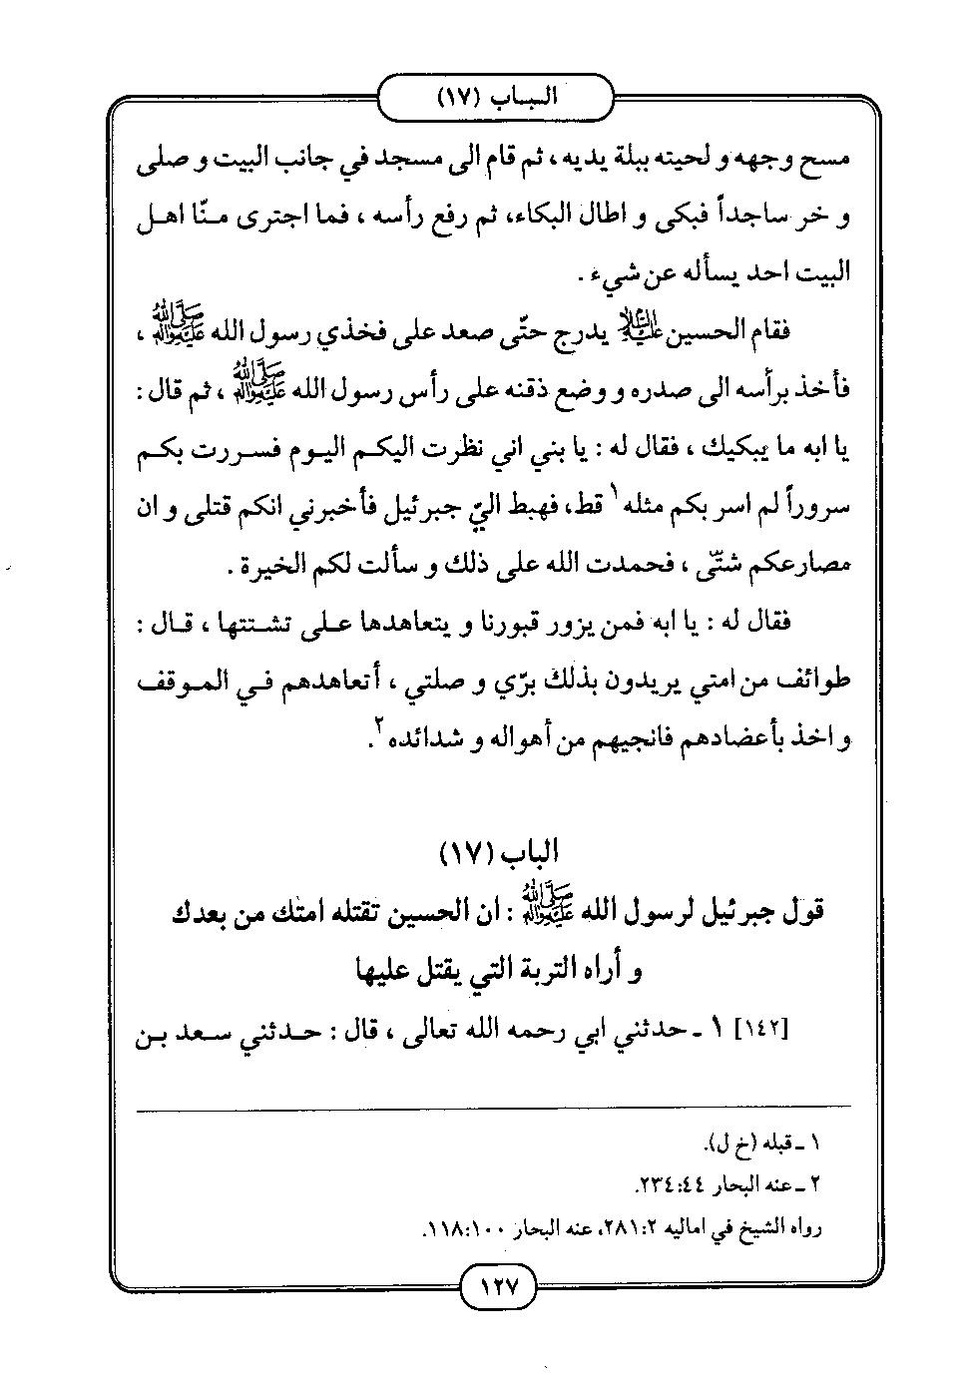 الباب (١٧)
مسح وجهه و لحيته ببلة يديه ، ثم قام الى مسجد في جانب البيت و صلى
و خر ساجداً فبكى و اطال البكاء، ثم رفع رأسه ، فما اجترى منّا اهل
البيت احد يسأله عن شيء .
فقام الحسين عليه السلام يدرج حتّى صعد على فخذي رسول الله صلى الله عليه وآله ،
فأخذ برأسه الى صدره و وضع ذقنه على رأس رسول الله صلى الله عليه وآله ، ثم قال :
يا ابه ما يبكيك ، فقال له : يا بني اني نظرت اليكم اليوم فسررت بكم
سروراً لم اسر بكم مثله ١ قط، فهبط اليّ جبرئيل فأخبرني انكم قتلى و ان
مصارعكم شتّى ، فحمدت الله على ذلك و سألت لكم الخيرة .
فقال له : يا ابه فمن يزور قبورنا و يتعاهدها على تشتتها ، قال :
طوائف من امتي يريدون بذلك برّي و صلتي ، أتعاهدهم في الموقف
و اخذ بأعضادهم فانجيهم من أهواله و شدائده ٢.
الباب (١٧)
قول جبرئيل لرسول الله صلى الله عليه وآله : ان الحسين تقتله امتك من بعدك
و أراه التربة التي يقتل عليها
[١٤٢] ١ ـ حدثني ابي رحمه الله تعالى ، قال : حدثني سعد بن
١ ـ قبله (خ ل).
٢ ـ عنه البحار ٤٤:٢٣٤.
رواه الشيخ في اماليه ٢:٢٨١، عنه البحار ١٠٠:١١٨.
١٢٧